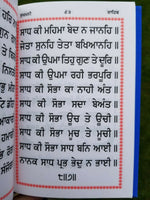 ਸਾਧ ਕੀ ਮਹਿਮਾ ਬੇਦ ਨ ਜਾਨਹਿ ॥
ਜੇਤਾ ਸੁਨਹਿ ਤੇਤਾ ਬਖਿਆਨਹਿ ॥
ਸਾਧ ਕੀ ਉਪਮਾ ਤਿਹੁ ਗੁਣ ਤੇ ਦੂਰਿ ॥
ਸਾਧ ਕੀ ਉਪਮਾ ਰਹੀ ਭਰਪੂਰਿ ॥
ਸਾਧ ਕੀ ਸੋਭਾ ਕਾ ਨਾਹੀ ਅੰਤ ॥
ਸਾਧ ਕੀ ਸੋਭਾ ਸਦਾ ਬੇਅੰਤ ॥
ਸਾਧ ਕੀ ਸੋਭਾ ਊਚ ਤੇ ਊਚੀ ॥
ਸਾਧ ਕੀ ਸੋਭਾ ਮੂਚ ਤੇ ਮੂਚੀ ॥
ਸਾਧ ਕੀ ਸੋਭਾ ਸਾਧ ਬਨਿ ਆਈ ॥
ਨਾਨਕ ਸਾਧ ਪ੍ਰਭ ਭੇਦੁ ਨ ਭਾਈ ॥
੮॥੭॥